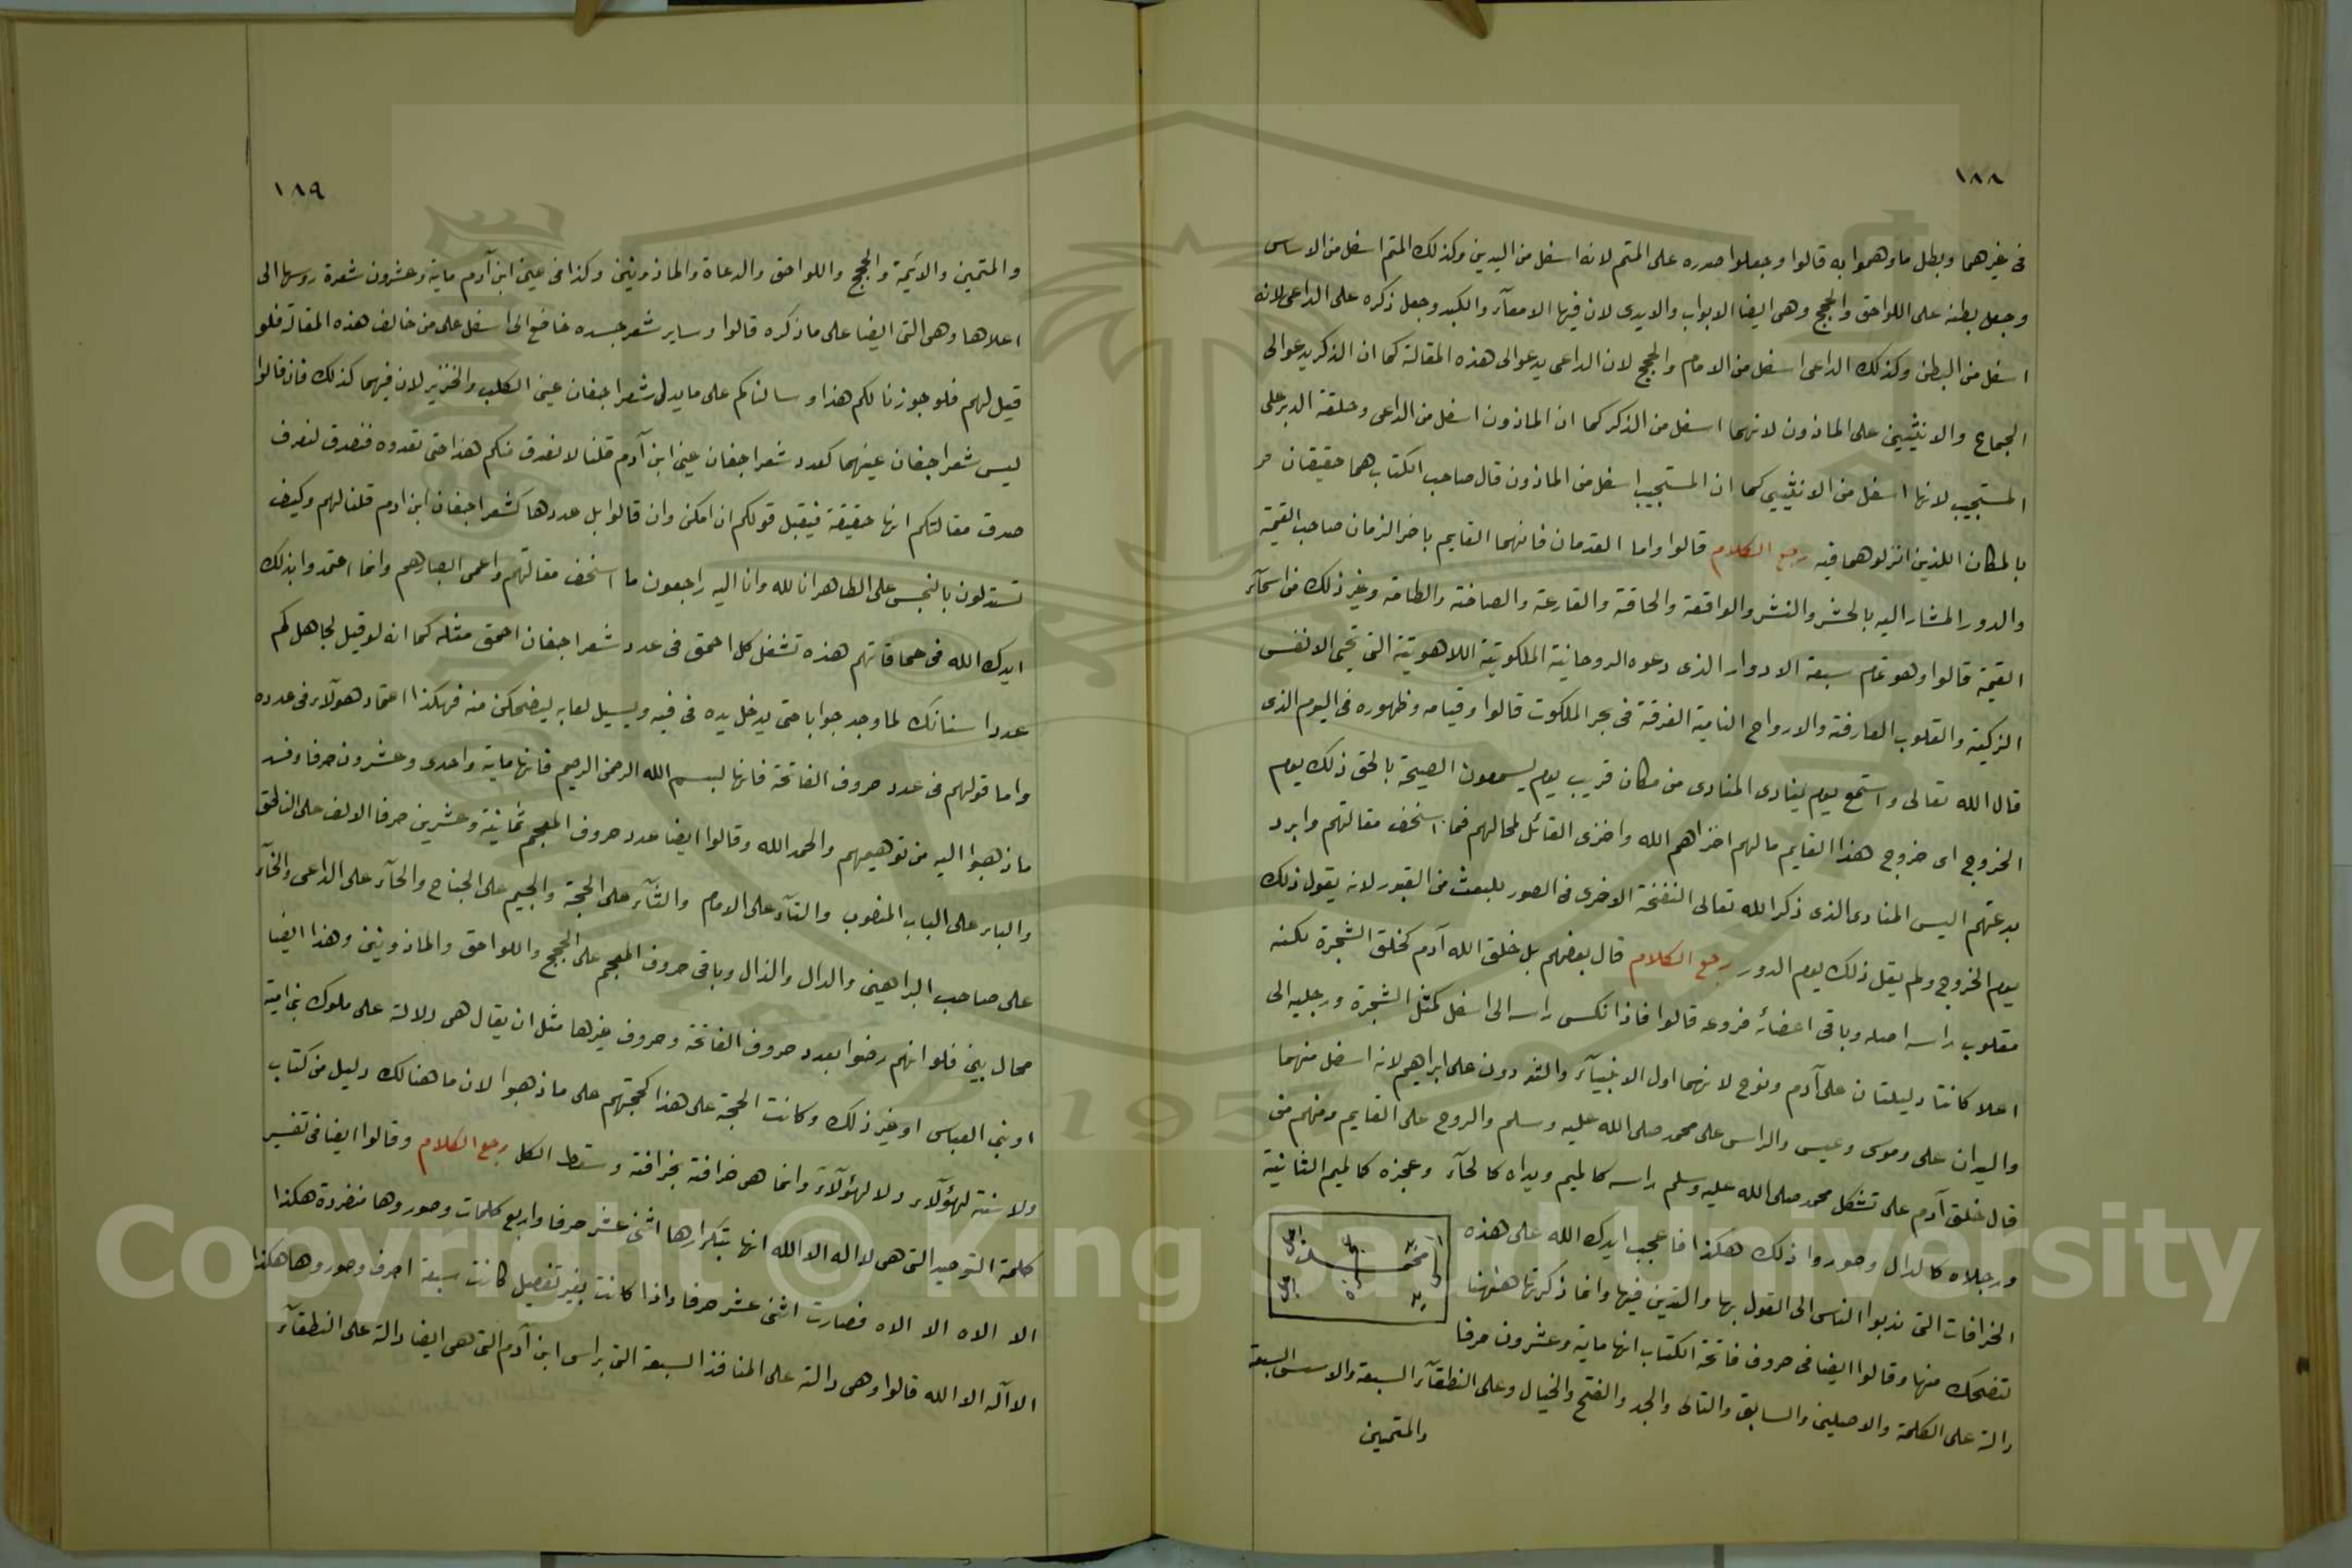 ١٨٨
فى غيرهما وبطل ما وهموا به قالوا وجعلوا صدره على المتم لانه اسفل من اليدين وكذلك المتم اسفل من الاساس
وجعل بطنه على اللواحق والحجج وهى ايضا الابواب والايدى لان فيها الامعآء والكبد وجعل ذكره على الداعى لانه
اسفل من البطن وكذلك الداعى اسفل من الامام والحجج لان الداعى يدعو الى هذه المقالة كما ان الذكر يدعو الى
الجماع والانثيين على الماذون لانهما اسفل من الذكر كما ان الماذون اسفل من الداعى وحلقة الدبر على
المستجيب لانها اسفل من الانثيين كما ان المستجيب اسفل من الماذون قال صاحب الكتاب هما حقيقان
بالمكان اللذين انزلوهما فيه رجع الكلام قالوا واما القدمان فانهما القايم باخر الزمان صاحب القيمة
والدور المشار اليه بالحشر والنشر والواقعة والحاقة والقارعة والصاخة والطامة وغير ذلك من اسمآء
القيمة قالوا وهو تمام سبعة الادوار الذى دعوه الروحانية الملكوتية اللاهوتية التى تحيى الانفس
الزكية والقلوب العارفة والارواح النامية الغرقة فى بحر الملكوت قالوا وقيامه وظهوره فى اليوم الذى
قال الله تعالى واستمع يوم ينادى المنادى من مكان قريب يوم يسمعون الصيحة بالحق ذلك يوم
الخروج اى خروج هذا القايم مالهم اخزاهم الله واخزى القائل لمحالهم فما اسخف مقالتهم وابرد
بدعتهم اليس المنادى الذى ذكر الله تعالى النفخة الاخرى فى الصور للبعث من القبور لانه يقول ذلك
يوم الخروج ولم يقل ذلك يوم الدور رجع الكلام قال بعضهم بل خلق الله آدم كخلق الشجرة لكنه
مقلوب راسه اصله وباقى اعضائه فروعه قالوا فاذا نكس راسه الى اسفل كمثل الشجرة ورجليه الى
اعلا كانتا دليلتان على آدم ونوح لانهما اول الانبيآء والثدودن على ابراهيم لانه اسفل منهما
واليدان على وموسى وعيسى والراس على محمد صلى الله عليه وسلم والروح على القايم ومنهم من
قال خلق آدم على تشكل محمد صلى الله عليه وسلم راسه كالميم ويداه كالحآء وعجزه كالميم الثانية
ورجلاه كالدال وصوروا ذلك هكذا فاعجب ايدك الله على هذه
الخرافات التى ندبوا الناس الى القول بها والتدين فيها وانما ذكرتها ههنا
لتضحك منها وقالوا ايضا فى حروف فاتحة الكتاب انها ماية وعشرون حرفا
دالة على الكلمة والاصلين والسابق والتالى والجد والفتح والخيال وعلى النطقآء السبعة والاسس السبعة
والمتمين
١٨٩
والمتمين والائمة والحجج واللواحق والدعاة والماذونين وكذا فى عينى ابن آدم ماية وعشرون شعرة روسها الى
اعلاها وهى التى ايضا على ما ذكره قالوا وساير شعر جسده خاضع الى اسفل على من خالف هذه المقالة فلو
قيل لهم فلو جوزنا لكم هذا وسالناكم على ما يدل شعر اجفان عين الكلب والخنزير لان فيهما كذلك فان قالوا
ليس شعر اجفان عينهما كعدد شعر اجفان عينى ابن آدم قلنا لا نصدق منكم هذا حتى تعدوه فنصدق لنعرف
صدق مقالتكم انها حقيقة فيقبل قولكم ان امكن وان قالوا بل عددها كشعر اجفان ابن ادم قلنا لهم وكيف
تستدلون بالنجس على الطاهر انا لله وانا اليه راجعون ما اسخف مقالتهم واعمى ابصارهم وانما اعتمدوا بذلك
ايدك الله فى حماقاتهم هذه تشغل كل احمق فى عدد شعر اجفان احمق مثله كما انه لو قيل لجاهل كم
عدد اسنانك لما وجد جوابا حتى يدخل يده فى فيه ويسيل لعابه ليضحكن منه فهكذا اعتماد هولآء فى عدده
واما قولهم فى عدد حروف الفاتحة فانها لبسم الله الرحمن الرحيم فانها ماية واحدى وعشرون حرفا وفسد
ما ذهبوا اليه من توهيمهم والحمد الله وقالوا ايضا عدد حروف المعجم ثمانية وعشرين حرفا الالف على الناطق
والباء على الباب المنصوب والتآء على الامام والثآء على الحجة والجيم على الجناح والحآء على الداعى والخآء
على صاحب البراهين والدال والذال وباقى حروف المعجم على الحجج واللواحق والماذونين وهذا ايضا
محال بين فلو انهم رضوا بعدد حروف الفاتحة وحروف غيرها مثل ان يقال هى دلالة على ملوك بنى امية
او بنى العباس او غير ذلك وكانت الحجة على هذا كحجتهم على ما ذهبوا لان ما هنالك دليل من كتاب
ولا سنة لهؤلاء ولا لهؤلآء وانما هى خرافة بخرافة وسقط الكل رجع الكلام وقالوا ايضا فى تفسير
كلمة التوحيد التى هى لا اله الا الله انها بتكرارها اثنى عشر حرفا واربع كلمات وصوروها منفردة هكذا
الا الاه الا الاه فصارت اثنى عشر حرفا واذا كانت بغير تفصيل كانت سبعة احرف وصوروها هكذا
الاآله الا الله قالوا وهى دالة على المنافذ السبعة التى براس ابن آدم التى هى ايضا دالة على النطقآء
Copyright © King Saud University
1957